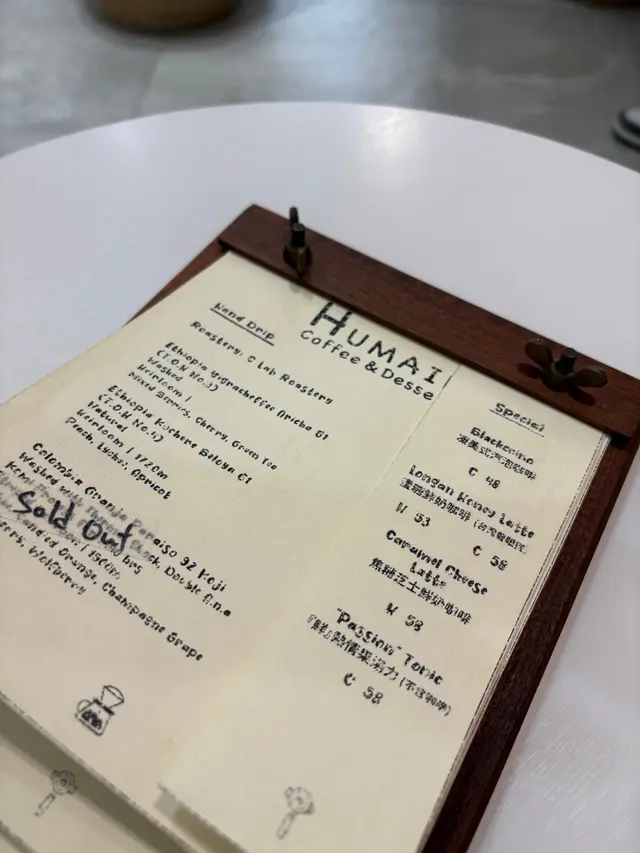 HUMAI
Coffee & Desse
Hand Drip
Roastery. C Lab Roastery
Ethiopia Yirgacheffee Aricha G1
(T.O.H No.3)
Washed
Heirloom /
Mixed Berrys, Cherry, Green Tea
Ethiopia Kochere Beloya G1
(T.O.H No.4)
Natural
Heirloom / 1720m
Peach, Lychee, Apricot
Colombia Granja Paraiso 92 Koji
Washed
Sold Out
Orange, Champagne Grape
Wolfberry
Special
Blackccino
凍美式汽泡咖啡
C 48
Longan Honey Latte
鮮奶咖啡
H 53
C 58
Caramel Cheese
Latte
焦糖芝士鮮奶咖啡
H 58
"Passion" Tonic
『鮮』熱情果湯力 (不含咖啡)
C 58